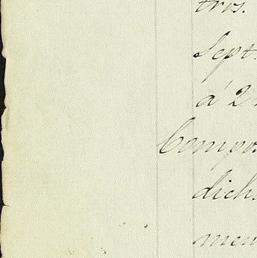 tros.
Sept
á 2
Compo
dich
men